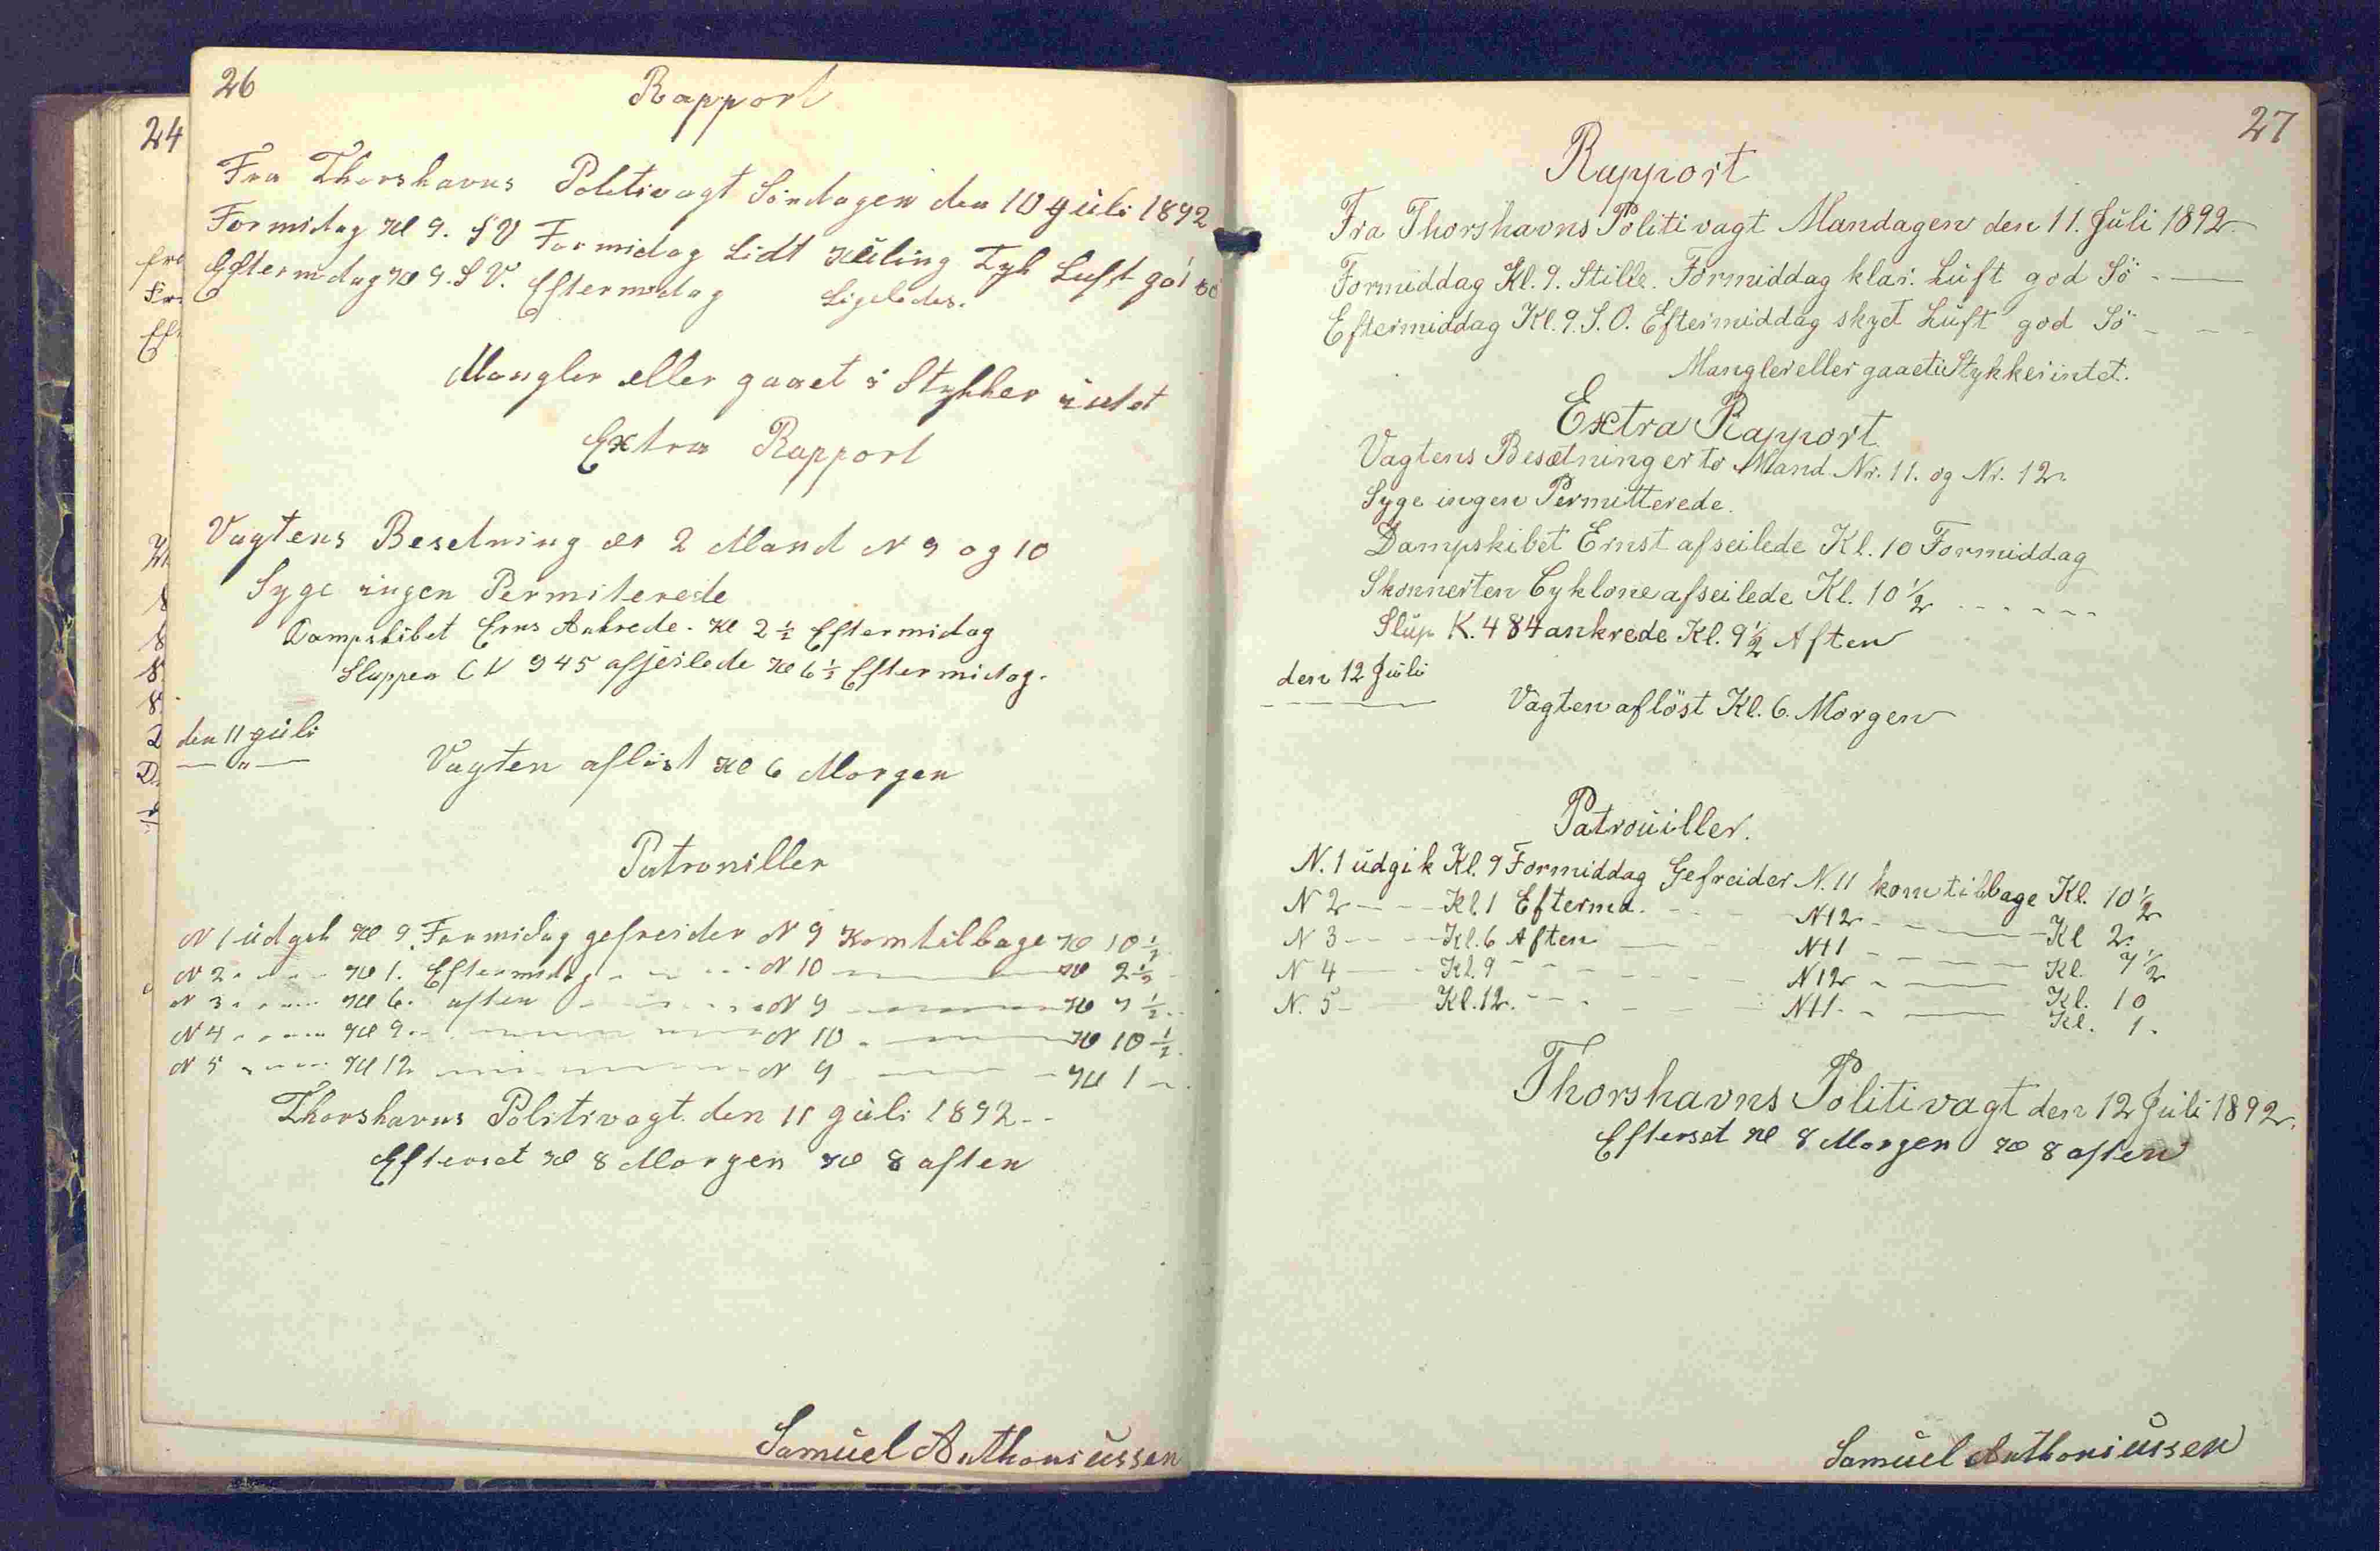 26
Rapport
Fra Thorshavns Politivagt Söndagen den 10 Juli 1892
Formidag Kl 9. S V Formidag Lidt Kuling Tyk Luft
Eftermidag Kl 9. S V. Eftermidag Ligeledes.
Mangler eller gaaet i Stykker intet
Extra Rapport
Vagtens Besetning er 2 Mand N 9 og 10
Syge ingen Permiterede
Dampskibet Erns Ankrede. Kl 2 ½ Eftermidag
Sluppen 945 afseilede Kl 6 ½ Eftermidag.
den 11 Juli
— " —
Vagten aflöst Kl 6 Morgen
Patrouiller
N 1 udgik Kl 9. Formidag gefreider N 9 Kom tilbage Kl 10 ½
N 2 - - - Kl 1. Eftermidag - - - N 10 — Kl 2 ½
N 3 - - - Kl 6. aften - - - N 9 — Kl 7 ½
N 4 - - - Kl 9 - - - N 10 — Kl 10 ½
N 5 - - - Kl 12 - - - N 9 — Kl 1
Thorshavns Politivagt den 11 Juli 1892 - -
Efterset Kl 8 Morgen Kl 8 aften
Samuel Anthoniussen
24
27
Rapport
Fra Thorshavns Politivagt Mandagen den 11. Juli 1892
Formiddag Kl. 9. Stille. Formiddag klar. Luft god Sö - —
Eftermiddag Kl. 9. S. O. Eftermiddag skyet Luft god Sö - - -
Mangler eller gaaet i Stykker intet.
Extra Rapport
Vagtens Besætning er to Mand Nr. 11. og Nr. 12.
Syge ingen Permitterede.
Dampskibet Ernst afseilede Kl. 10 Formiddag
Skonnerten Cyklone afseilede Kl. 10 ½ - - - - - -
Slup K. 484 ankrede Kl. 9 ½ Aften
den 12 Juli
Vagten aflöst Kl. 6. Morgen
Patrouiller.
N. 1 udgik Kl. 9 Formiddag Gefreider N. 11 kom tilbage Kl. 10 ½
N 2 - - - Kl. 1 Efterma. - - - N 12 - — Kl 2.
N 3 - - - Kl. 6 Aften — - N 11 - — Kl. 7 ½
N 4 - - - Kl. 9 - - - N 12 - — Kl. 10
N. 5 - - - Kl. 12. - - - N 11. - — Kl. 1.
Thorshavns Politivagt den 12 Juli 1892.
Efterset Kl 8 Morgen Kl 8 aften
Samuel Anthoniussen